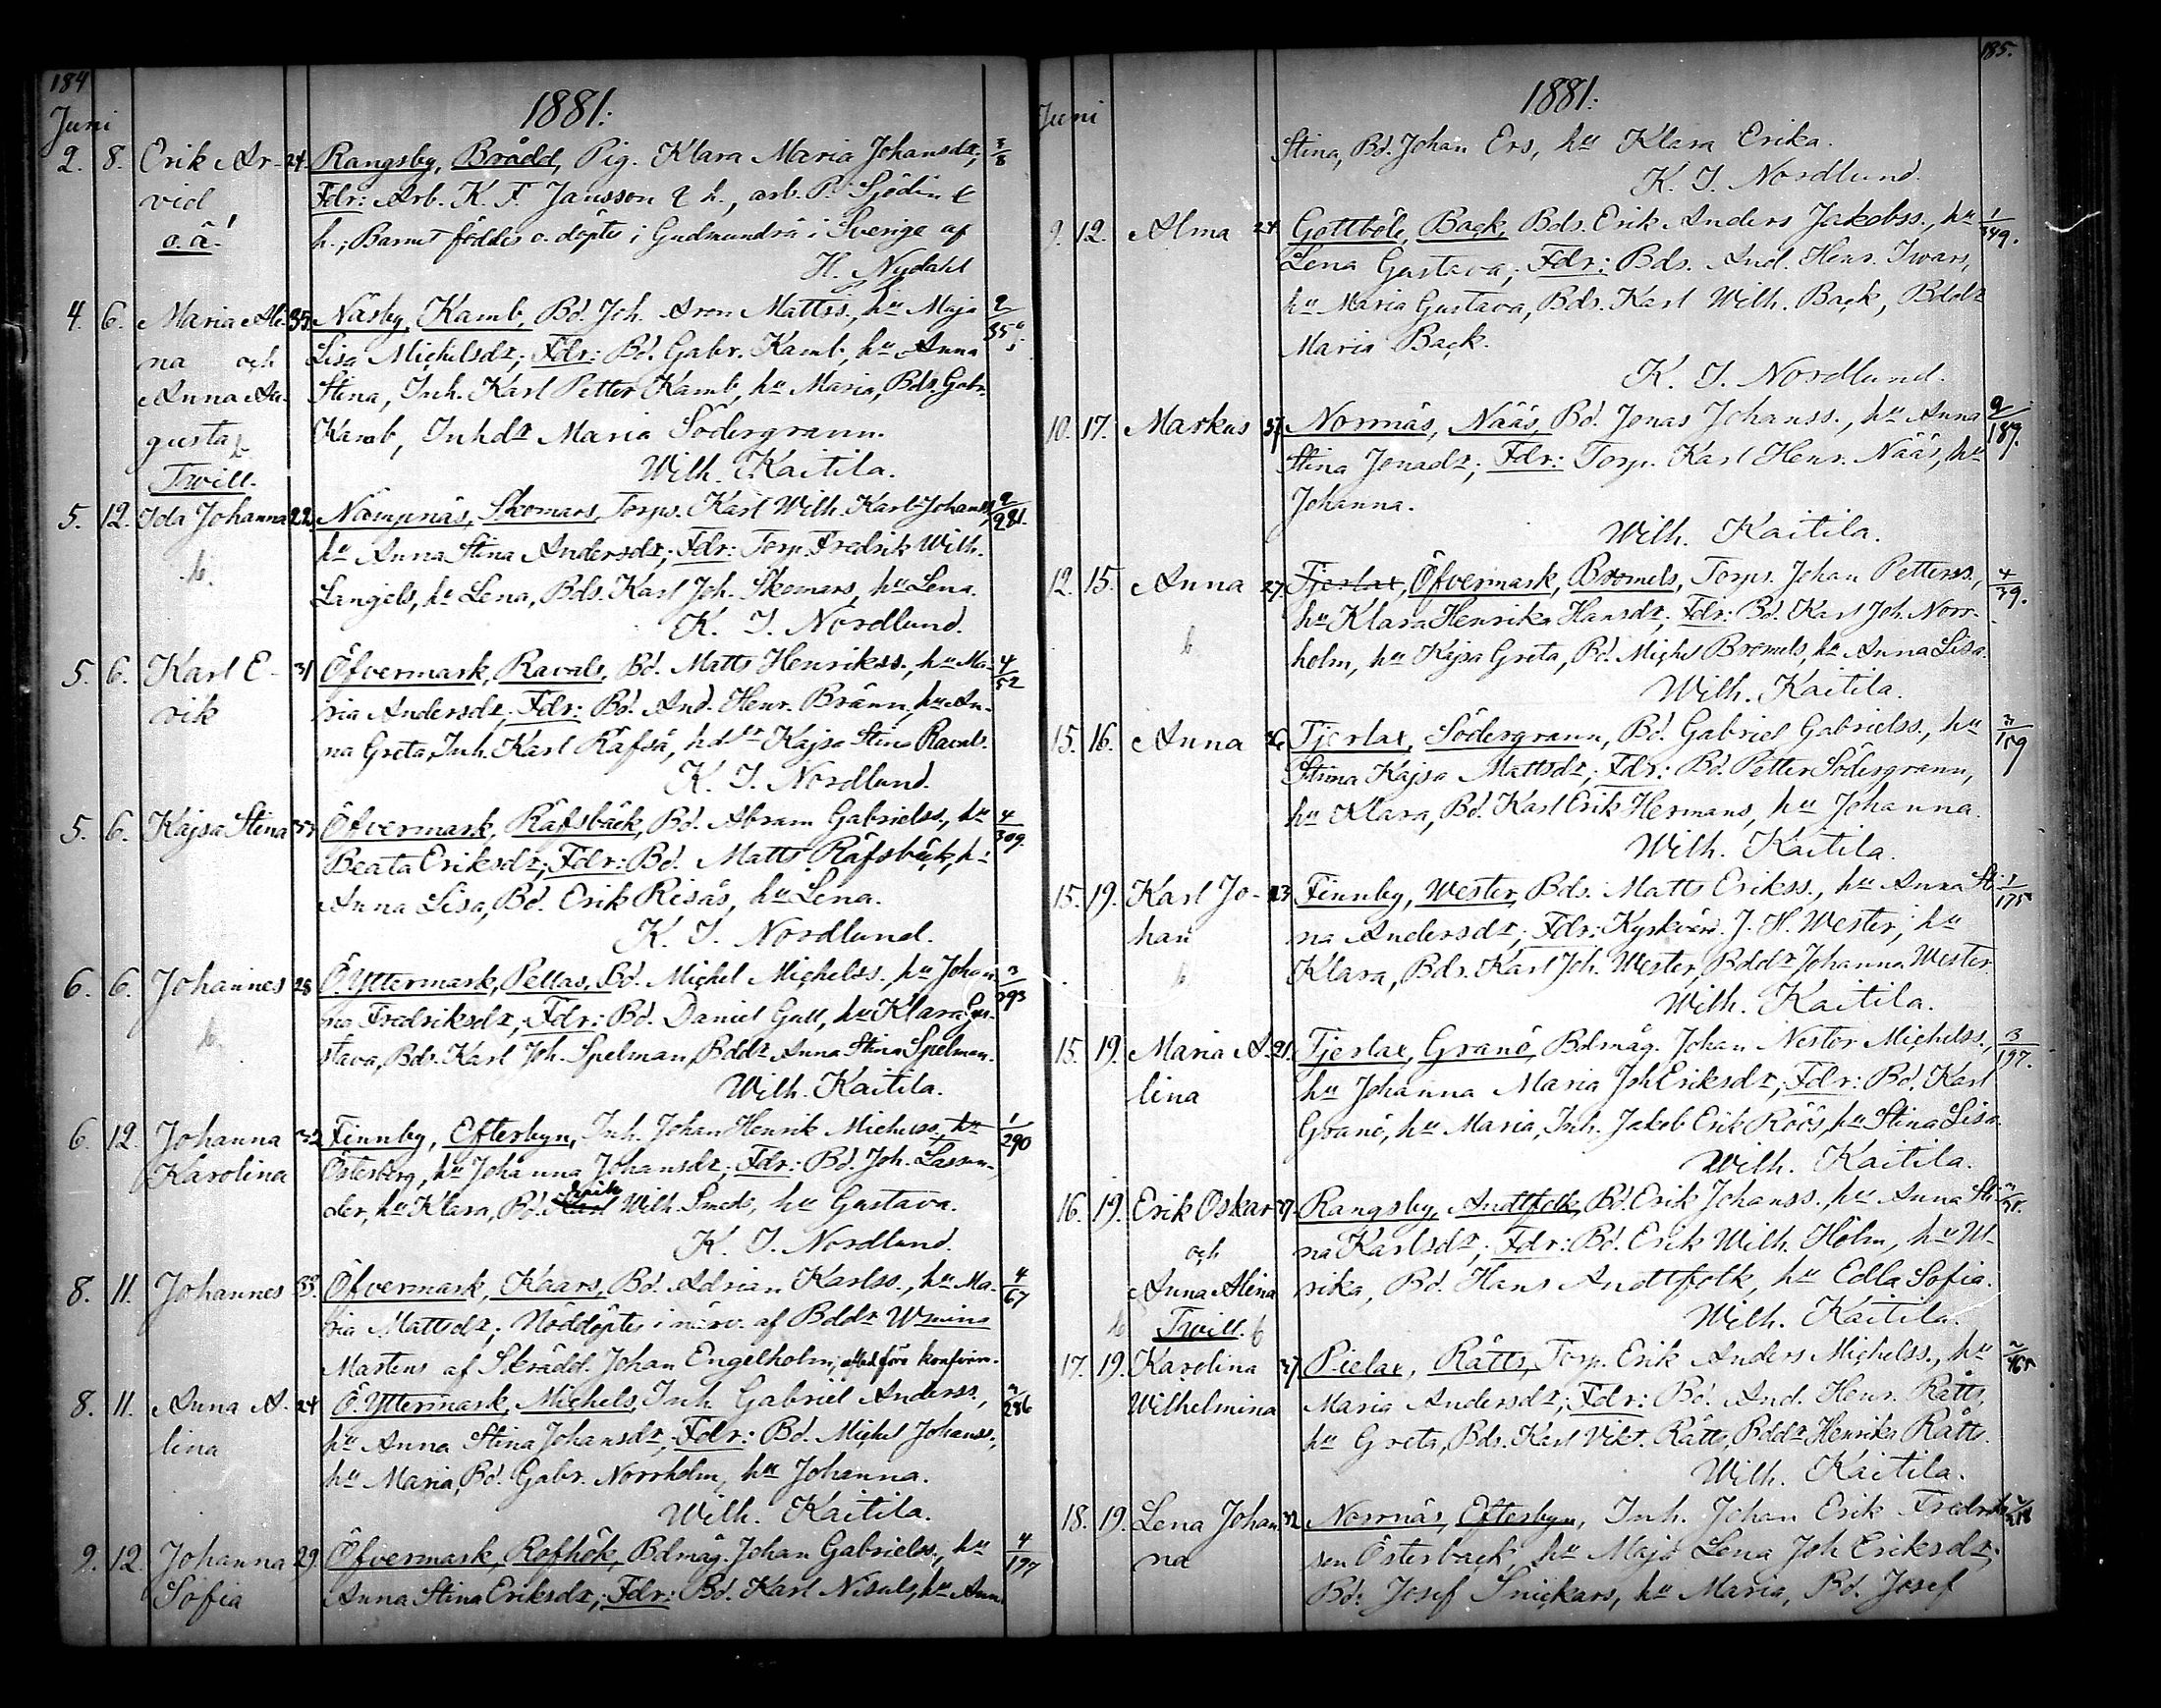 184
1881.
Juni
2. 8. Erik Ar- 24. Rangsby, Brådd, Pig. Klara Maria Johansdr, 3/8
vid Fdr: Arb. K. F. Jansson & h., arb. P. Sjödin &
o. ä! h.; Barnet föddes o. döptes i Gudmundrå i Sverige af
H. Nydahl
4. 6. Maria Ali- 35. Näsby, Kamb, Bd. Joh. Aron Mattss., hu Maja 2/35
na och Lisa Michelsdr; Fdr: Bd. Gabr. Kamb, hu Anna
Anna Au- Stina, Inh. Karl Petter Kamb, hu Maria, Bds. Gabr.
gusta Kamb, Inhdr Maria Södergrann.
Twill. Wilh. Kaitila.
5. 12. Ida Johanna 22. Nämpnäs, Skomars, Torps. Karl Wilh. Karl-Johanss, 2/281.
b. hu Anna Stina Andersdr; Fdr: Torp. Fredrik Wilh.
Langels, hu Lena, Bds. Karl Joh. Skomars, hu Lena.
K. I. Nordlund.
5. 6. Karl E- 31 Öfvermark, Ravals, Bd. Matts Henrikss., hu Ma- 4/52
rik ria Andersdr; Fdr: Bd. And. Henr. Bränn, hu An-
na Greta, Inh. Karl Räfså, Kajsa Stina Ravals.
K. I. Nordlund.
5. 6. Kajsa Stina Öfvermark, Räfsbäck, Bd. Abram Gabrielss., hu 4/309.
Beata Eriksdr; Fdr: Bd. Matts Räfsbäck, hu
Anna Lisa, Bd. Erik Risås, hu Lena.
K. I. Nordlund.
6. 6. Johannes 28 Ö. Yttermark, Pellas, Bd. Michel Michelss., hu Johan- 3/393
b. na Fredriksdr; Fdr: Bd. Daniel Gull, hu Klara Gu-
stava, Bds. Karl Joh. Spelman, Bddr Anna Stina Spelman.
Wilh. Kaitila.
6. 12. Johanna 32 Finnby, Efterbyn, Inh. Johan Henrik Michelss. hu 1/290
Karolina Österberg, hu Johanna Johansdr; Fdr: Bd. Joh. Lassan-
der, hu Klara, Bd. Erik Wilh. Smeds, hu Gustava.
K. I. Nordlund.
8. 11. Johannes 33. Öfvermark, Kaars, Bd. Adrian Karlss., hu Ma- 4/67
ria Mattsdr; Nöddöptes i närv. af Bddr Wmina
Martens af Skrädd. Johan Engelholm, före konfirm.
8. 11. Anna A- 24 Ö. Yttermark, Michels, Inh. Gabriel Anderss., 286
lina hu Anna Stina Johansdr; Fdr: Bd. Michel Johanss.,
hu Maria, Bd. Gabr. Norrholm, hu Johanna.
Wilh. Kaitila.
9. 12. Johanna 29. Öfvermark, Rofhök, Bdmåg. Johan Gabrielss., hu 4/177
Sofia Anna Stina Eriksdr; Fdr: Bd. Karl Nisuls, hu Anna
185.
1881.
Juni
Stina, Bd. Johan Ers, hu Klara Erika.
K. I. Nordlund.
9. 12. Alma 24 Gottböle, Back, Bds. Erik Anders Jakobss., hu 1/349.
Lena Gustava; Fdr: Bds. And. Henr. Iwars,
hu Maria Gustava, Bds. Karl Wilh. Back, Bddr
Maria Back.
K. I. Nordlund.
10. 17. Markus 37. Norrnäs, Nääs, Bd. Jonas Johanss., hu Anna 2/187.
Stina Jonadr; Fdr: Torp. Karl Henr. Nääs, hu
Johanna.
Wilh. Kaitila.
12. 15. Anna 27. Tjerlax, Öfvermark, Bromels, Torps. Johan Petterss., 4/39.
b hu Klara Henrika Hansdr; Fdr: Bd. Karl Joh. Norr-
holm, hu Kajsa Greta, Bd. Michel Bromels, hu Anna Lisa.
Wilh. Kaitila.
15. 16. Anna 26 Tjerlax, Södergrann, Bd. Gabriel Gabrielss., hu 3/159
Stina Kajsa Mattsdr; Fdr: Bd. Petter Södergrann,
hu Klara, Bd. Karl Erik Hermans, hu Johanna.
Wilh. Kaitila.
15. 19. Karl Jo- 23 Finnby, Wester, Bds. Matts Erikss., hu Anna Sti- 1/175
han na Andersdr; Fdr: Kyrkvärd. J. H. Wester, hu
b Klara, Bds. Karl Joh. Wester, Bddr Johanna Wester.
Wilh. Kaitila.
15. 19. Maria A- 21. Tjerlax, Granö, Bdmåg. Johan Nestor Michelss., 3/197.
lina hu Johanna Maria Joh Eriksdr; Fdr: Bd. Karl
Granö, hu Maria, Inh. Jakob Erik Röös, hu Stina Lisa.
Wilh. Kaitila.
16. 19. Erik Oskar Rangsby, Andtfolk, Bd. Erik Johanss., hu Anna Sti-
och na Karlsdr; Fdr: Bd. Erik Wilh. Holm, hu Ul-
Anna Alina rika, Bd. Hans Andtfolk, hu Edla Sofia.
b Twill. b Wilh. Kaitila.
17. 19. Karolina 37. Pielax, Rätts, Torp. Erik Anders Michelss., hu
Wilhelmina Maria Andersdr; Fdr: Bd. And. Henr. Rätts,
hu Greta, Bds. Karl Vikt. Rätts, Bddr Henrika Rätts.
Wilh. Kaitila.
18. 19. Lena Johan 32 Norrnäs, Efterbyn, Inh. Johan Erik Fredriks
na son Österback, hu Maja Lena Joh Eriksdr;
Bd. Josef Snickars, hu Maria, Bd. Josef